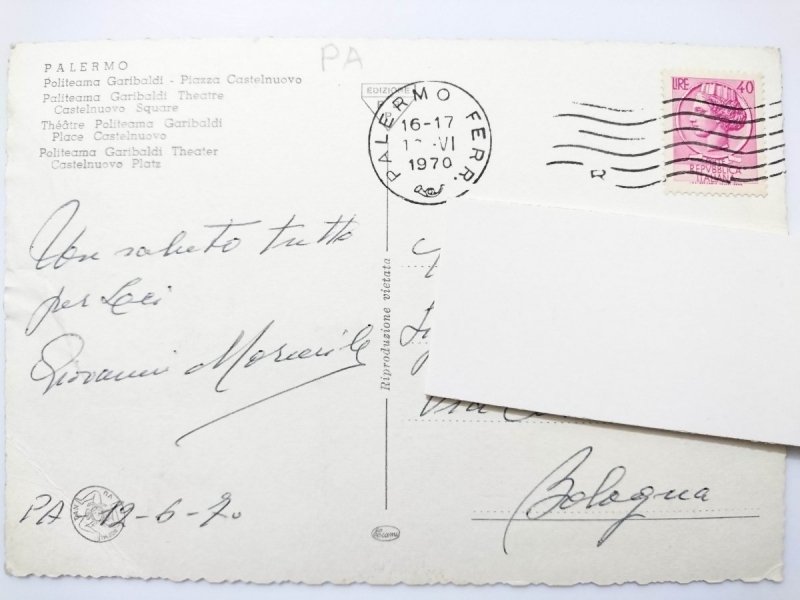 PA
PALERMO
Politeama Garibaldi - Piazza Castelnuovo
Politeama Garibaldi Theatre
Castelnuovo Square
Théâtre Politeama Garibaldi
Place Castelnuovo
Politeama Garibaldi Theater
Castelnuovo Platz
EDIZIONE
PALERMO FERR.
16-17
VI
1970
LIRE 40
REPVBBLICA
ITALIANA
R
Un saluto tutto
per Lei
Giovanni
PA 12-6-70
Riproduzione vietata
Via
Bologna